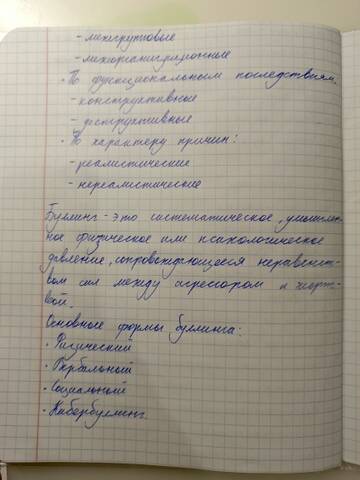 - межгрупповые
- межорганизационные
• По функциональным последствиям
- конструктивные
- деструктивные
• По характеру причин:
- реалистические
- нереалистические
Буллинг - это систематическое, умышлен-
ное физическое или психологическое
давление, сопровождающееся неравенст-
вом сил между агрессором и жерт-
вой.
Основные формы буллинга:
• Физический
• Вербальный
• Социальный
• Кибербуллинг